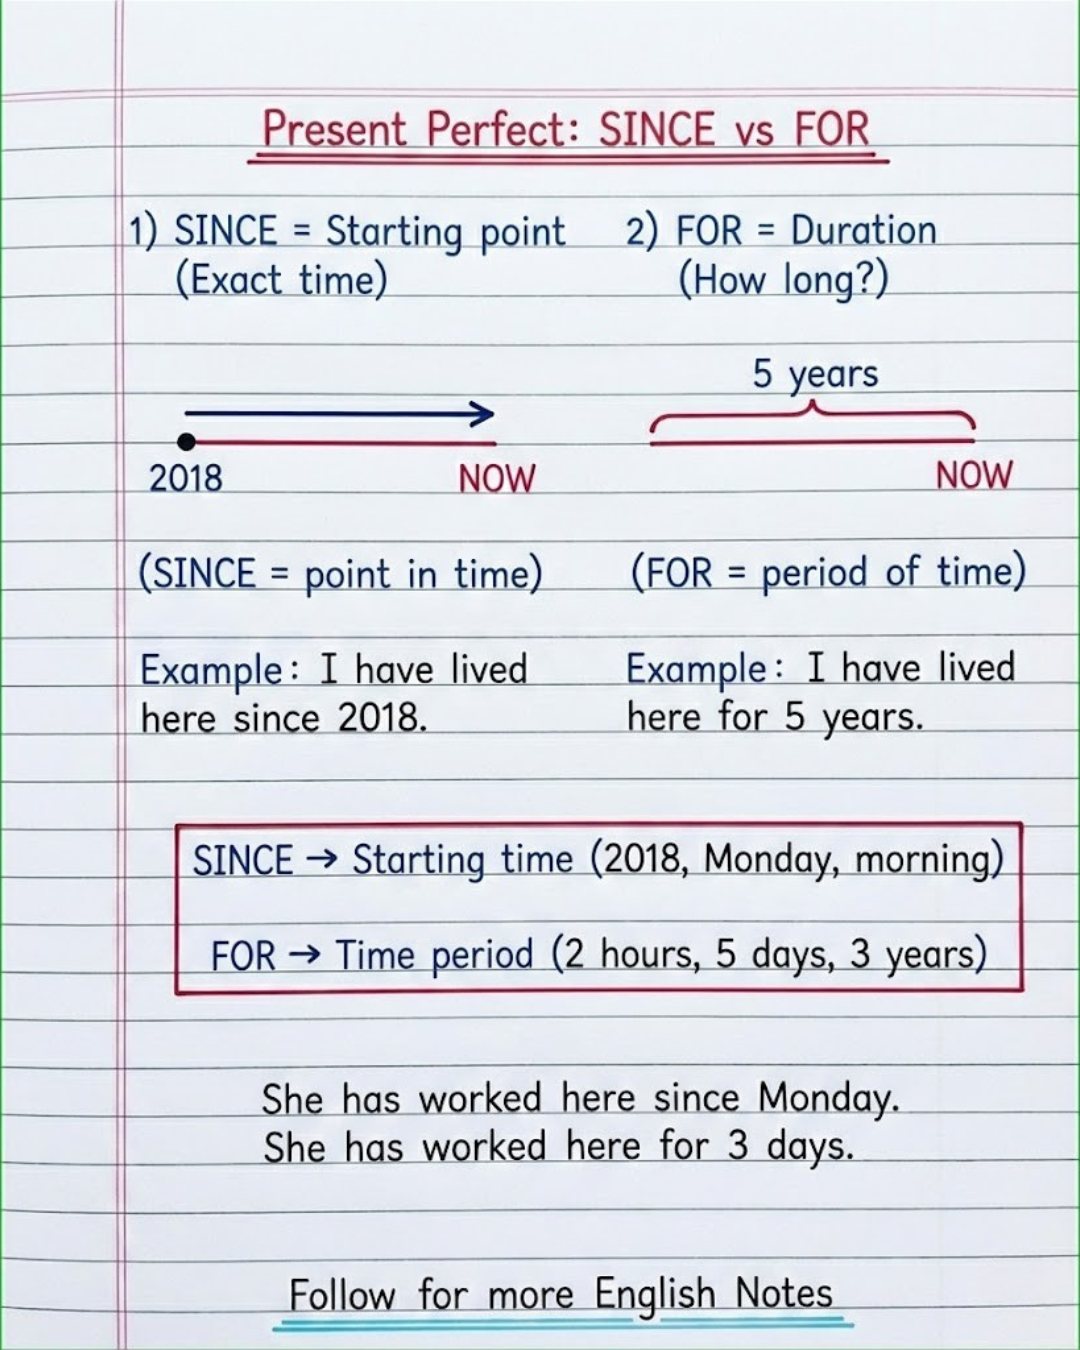 Present Perfect: SINCE vs FOR
1) SINCE = Starting point
(Exact time)
2) FOR = Duration
(How long?)
2018
NOW
5 years
NOW
(SINCE = point in time)
(FOR = period of time)
Example: I have lived
here since 2018.
Example: I have lived
here for 5 years.
SINCE → Starting time (2018, Monday, morning)
FOR → Time period (2 hours, 5 days, 3 years)
She has worked here since Monday.
She has worked here for 3 days.
Follow for more English Notes